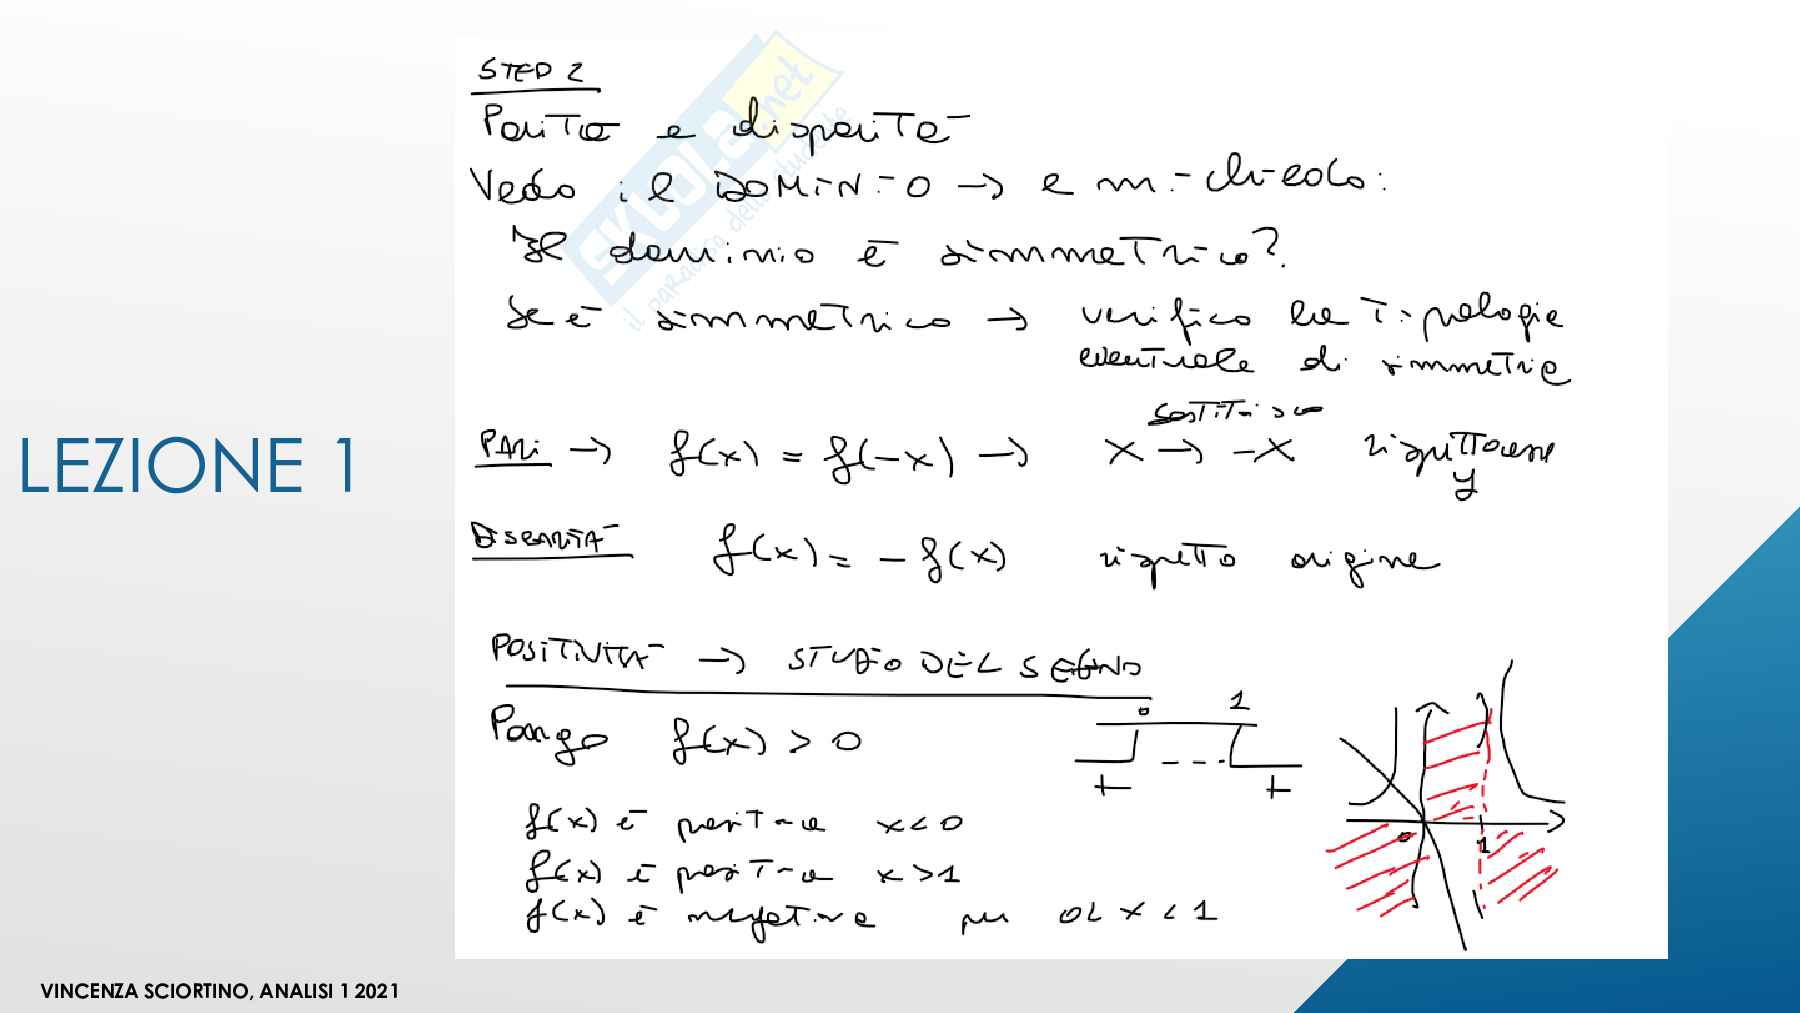 LEZIONE 1
STEP 2
Parità e disparità
Vedo il DOMINIO → e mi chiedo:
Il dominio è simmetrico?
Se è simmetrico → verifico la tipologie
eventuale di simmetrie
sostituisco
PARI → f(x) = f(-x) → x → -x rispetto asse
y
DISPARITÀ f(x) = - f(x) rispetto origine
POSITIVITÀ → STUDIO DEL SEGNO
Pongo f(x) > 0
0 1
+ --- +
f(x) è positiva x<0
f(x) è positiva x>1
f(x) è negativa per 0< x < 1
0 1
SKUOLA.net
il paradiso dello studente
VINCENZA SCIORTINO, ANALISI 1 2021